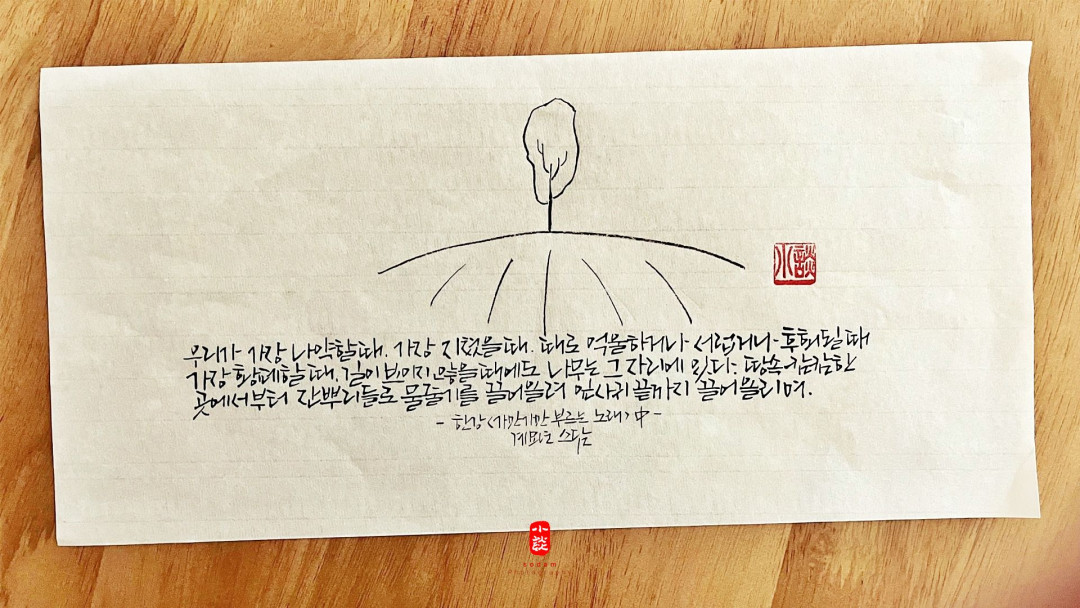 小談
우리가 가장 나약할 때, 가장 지쳤을 때, 때로 억울하거나 서럽거나 후회될 때
가장 황폐할 때, 길이 보이지 않을 때에도 나무는 그 자리에 있다. 땅속 캄캄한
곳에서부터 잔뿌리들로 물줄기를 끌어올려 잎사귀 끝까지 끌어올리며.
- 한강 <가만가만 부르는 노래> 中 -
小談
sodam